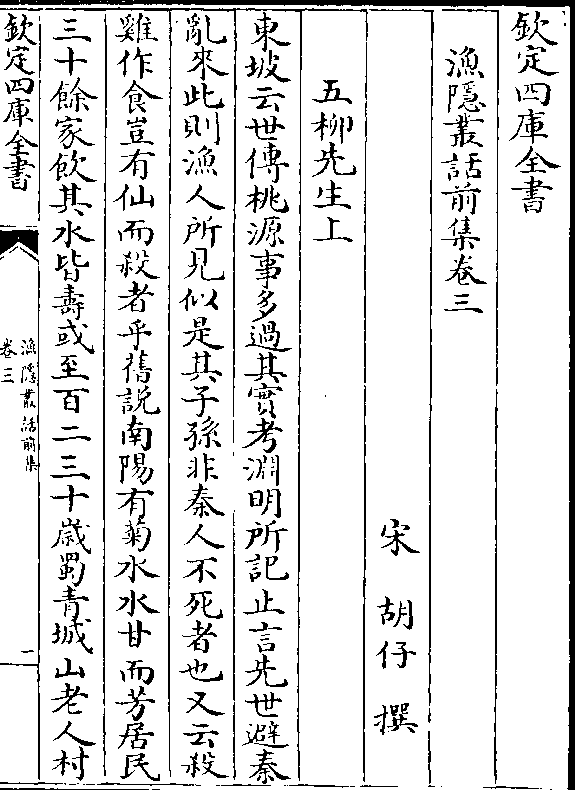 欽定四庫全書
漁隱叢話前集卷三
宋 胡仔 撰
五柳先生上
東坡云世傳桃源事多過其實考淵明所記止言先世避秦
亂來此則漁人所見似是其子孫非秦人不死者也又云殺
雞作食豈有仙而殺者乎舊說南陽有菊水水甘而芳居民
三十餘家飲其水皆壽或至百二三十歲蜀青城山老人村
欽定四庫全書
漁隱叢話前集
卷三
一